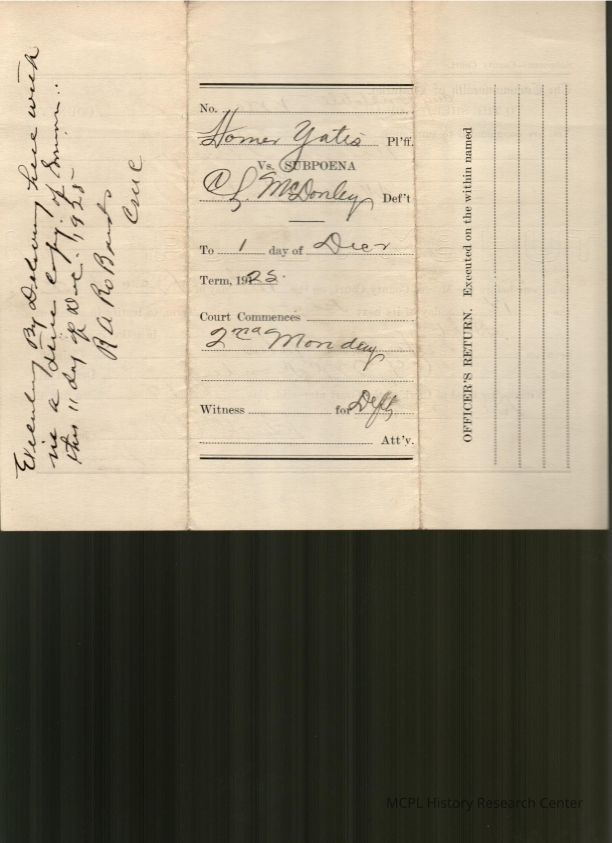 Executed By Delivering here with
in a true copy of Smmn..
this 11 dy of Dec. 1925
R A Ro Bards
CMC
No.
Homer Yates Pl'ff.
Vs. SUBPOENA
C L McDonley Def't
To 1 day of Decr
Term, 1925.
Court Commences
2nd Monday
Witness for Deft
Att'y.
OFFICER'S RETURN. Executed on the within named
MCPL History Research Center